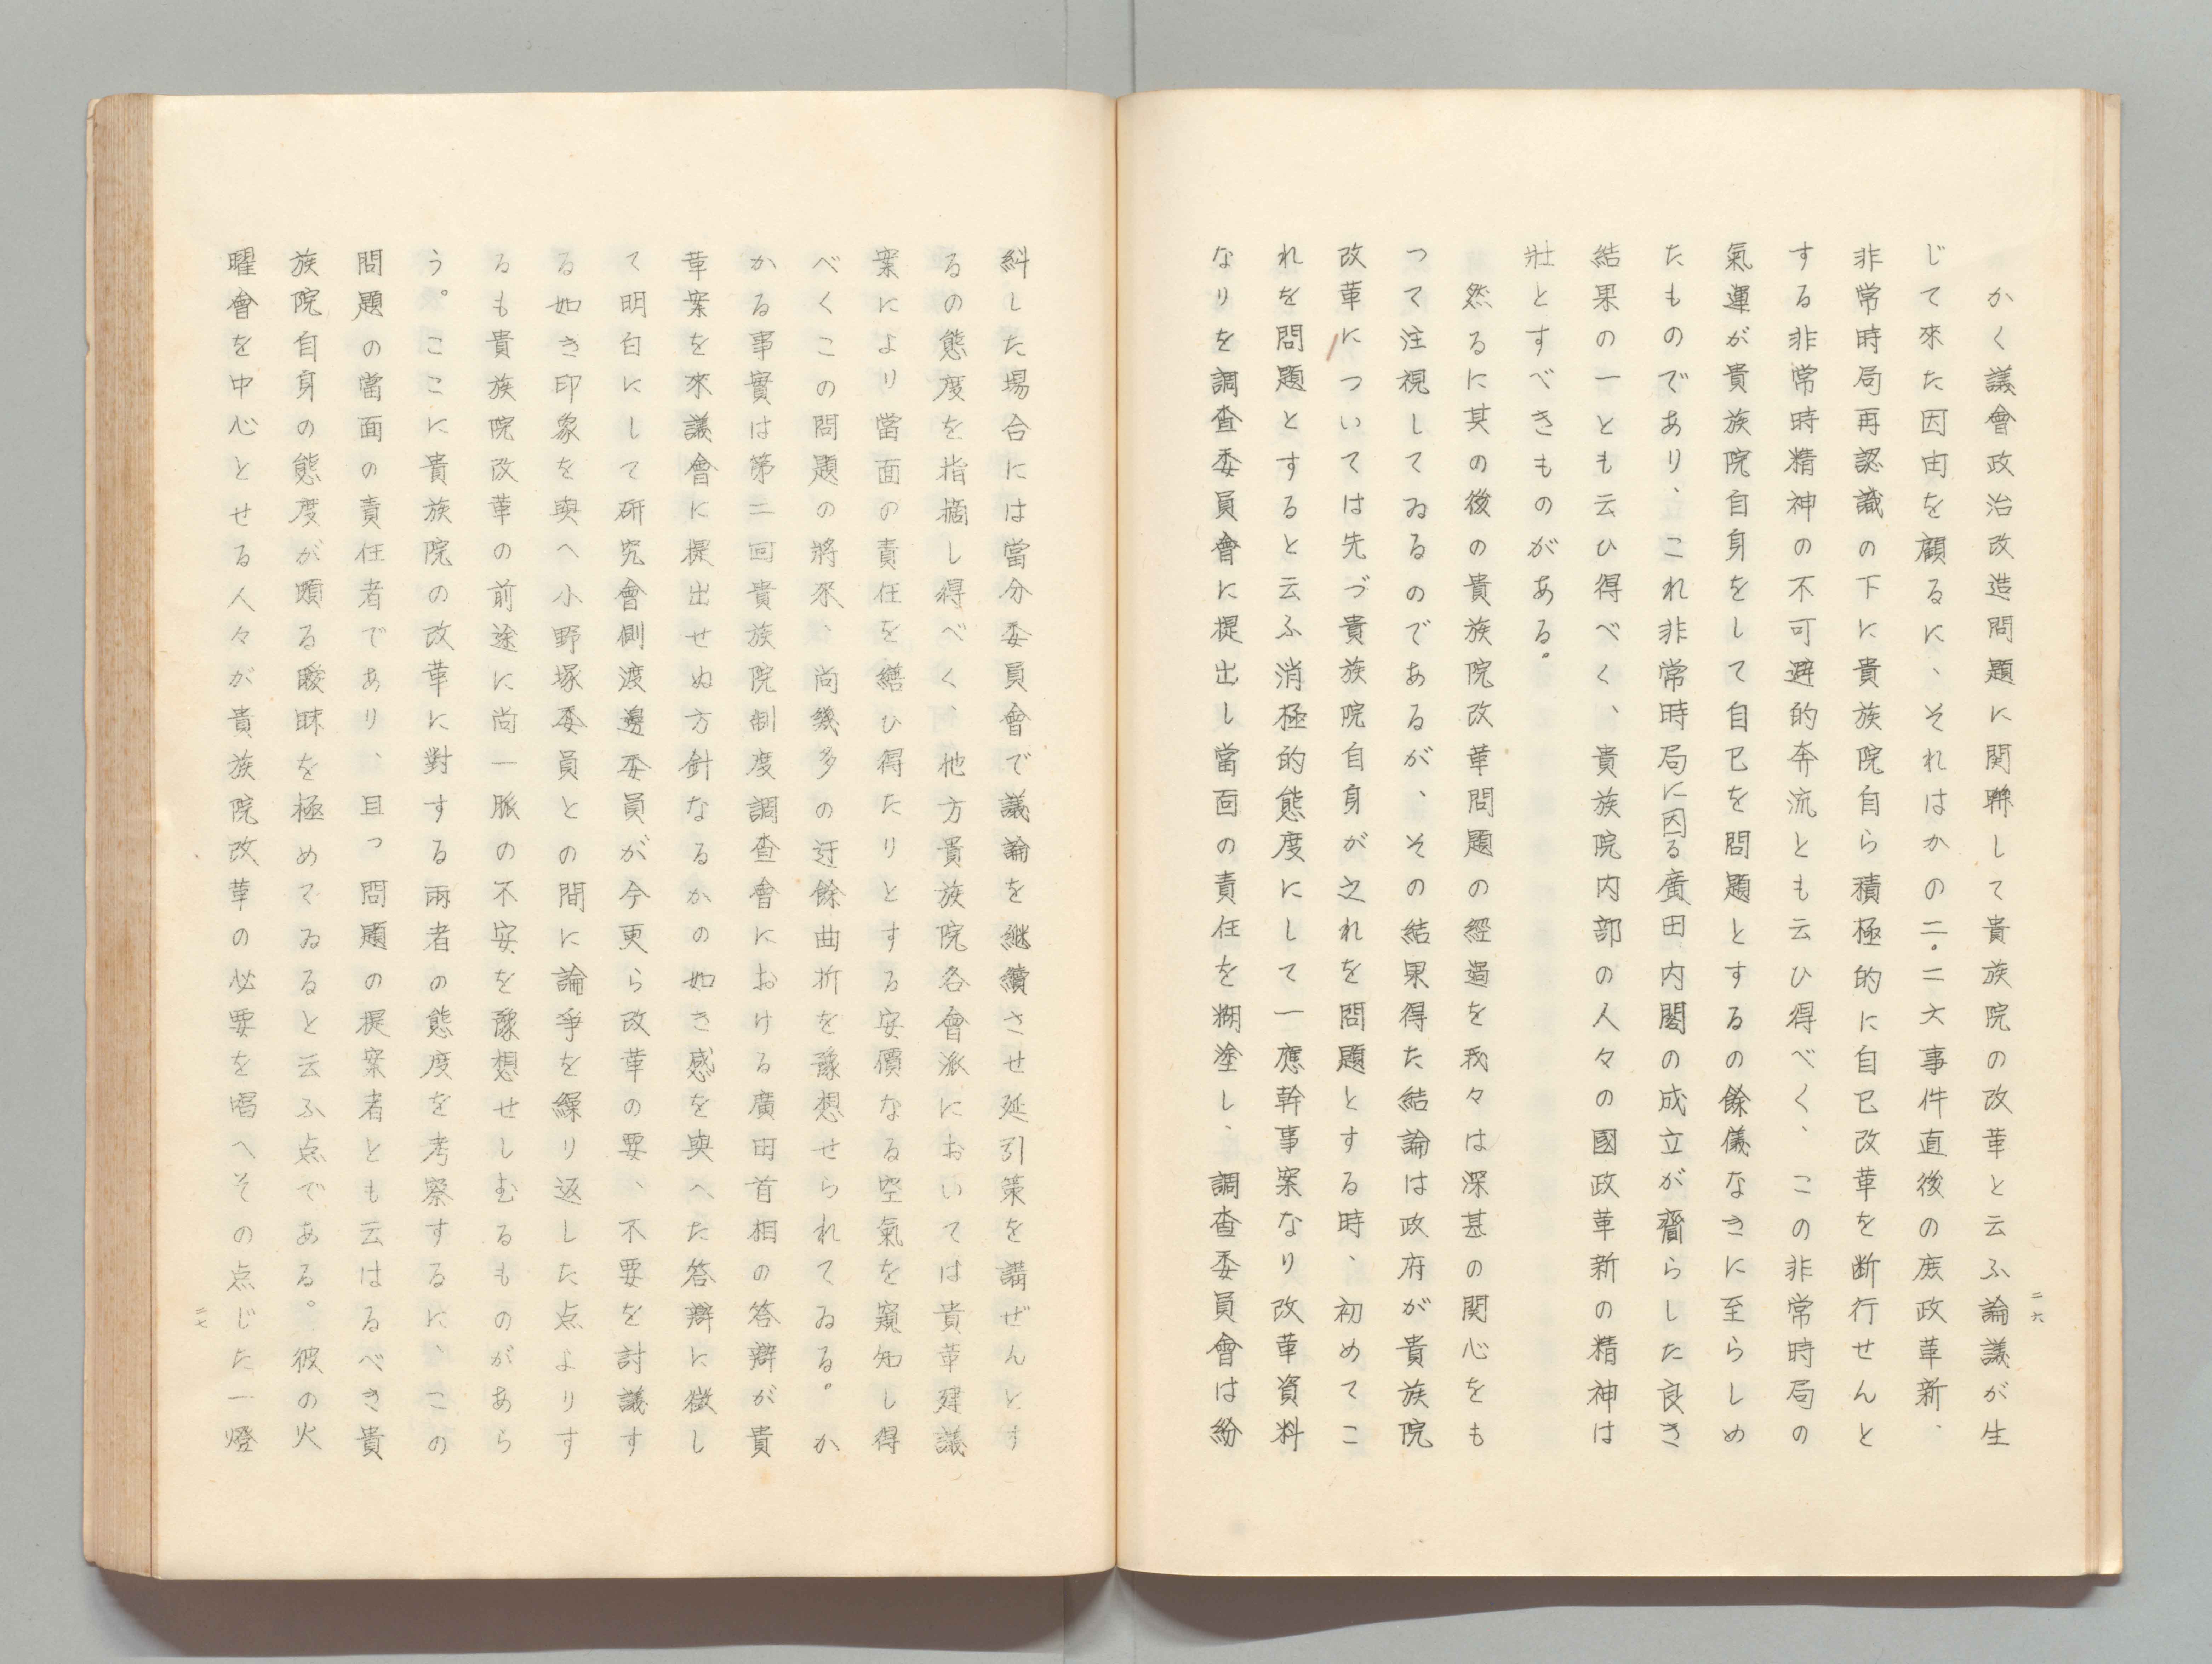 二六
かく議會政治改造問題に関聯して貴族院の改革と云ふ論議が生
じて來た因由を顧るに、それはかの二・二六事件直後の庶政革新、
非常時局再認識の下に貴族院自ら積極的に自己改革を断行せんと
する非常時精神の不可避的奔流とも云ひ得べく、この非常時局の
氣運が貴族院自身をして自己を問題とするの餘儀なきに至らしめ
たものであり、これ非常時局に因る廣田内閣の成立が齎らした良き
結果の一とも云ひ得べく、貴族院内部の人々の國政革新の精神は
壯とすべきものがある。
然るに其の後の貴族院改革問題の經過を我々は深甚の関心をも
つて注視してゐるのであるが、その結果得た結論は政府が貴族院
改革については先づ貴族院自身が之れを問題とする時、初めてこ
れを問題とすると云ふ消極的態度にして一應幹事案なり改革資料
なりを調査委員會に提出し當面の責任を糊塗し、調査委員會は紛
糾した場合には當分委員會で議論を継續させ延引策を講ぜんとす
るの態度を指摘し得べく、他方貴族院各會派においては貴革建議
案により當面の責任を繕ひ得たりとする安價なる空氣を窺知し得
べくこの問題の將來、尚幾多の迂餘曲折を豫想せられてゐる。か
かる事實は第二回貴族院制度調査會における廣田首相の答辯が貴
革案を來議會に提出せぬ方針なるかの如き感を與へた答辯に徴し
て明白にして研究會側渡邊委員が今更ら改革の要、不要を討議す
る如き印象を與へ小野塚委員との間に論爭を繰り返した点よりす
るも貴族院改革の前途に尚一脈の不安を豫想せしむるものがあら
う。ここに貴族院の改革に對する兩者の態度を考察するに、この
問題の當面の責任者であり、且つ問題の提案者とも云はるべき貴
族院自身の態度が頗る曖昧を極めてゐると云ふ点である。彼の火
曜會を中心とせる人々が貴族院改革の必要を唱へその点じた一燈
二七